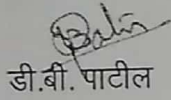 डी.बी. पाटील